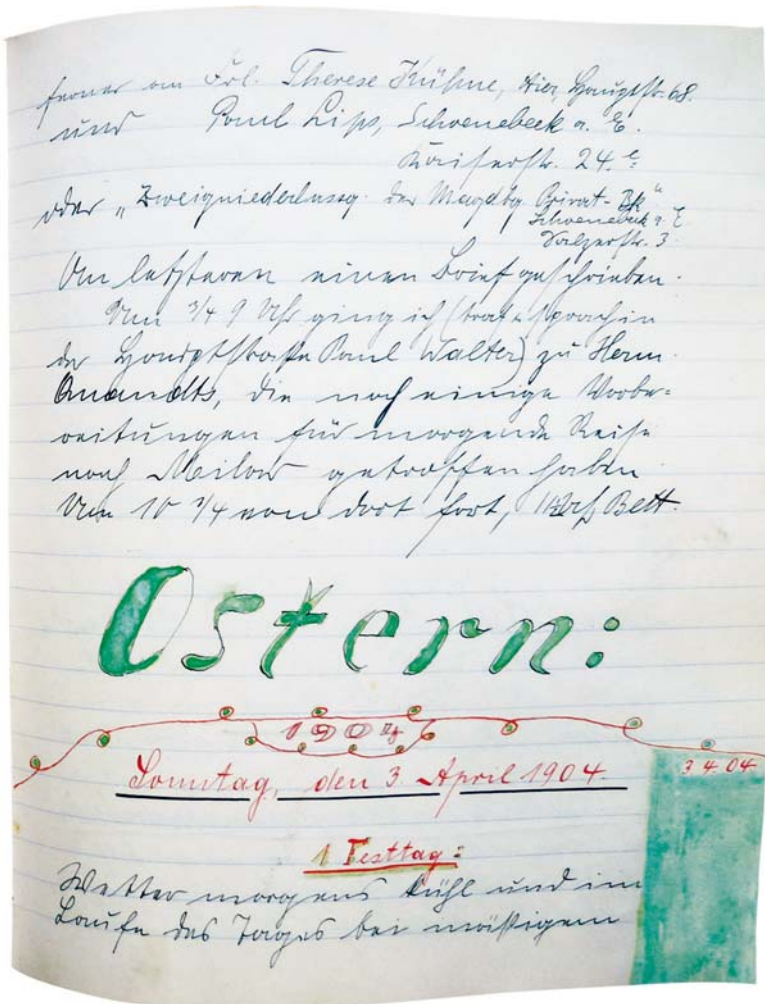 ferner an Frl. Therese Kühne, hier, Hauptstr. 68.
und Paul Lips, Schoenebeck a. E.
Kaiserstr. 24.
oder „Zweigniederlassg. der Magdbg Privat-Bk"
Schoenebeck a. E.
Salzerstr. 3
An letzteren einen Brief geschrieben.
Um 3/4 9 Uhr ging ich (traf u. sprach in
der Hauptstraße Paul Walter) zu Herm.
die noch einige Vorbe-
reitungen für morgende Reise
nach Milow getroffen haben
Um 10 3/4 von dort fort, Bett.
Ostern:
1904
Sonntag, den 3. April 1904.
3.4.04
1 Festtag:
Wetter morgens kühl und im
Laufe des Tages bei mäßigem